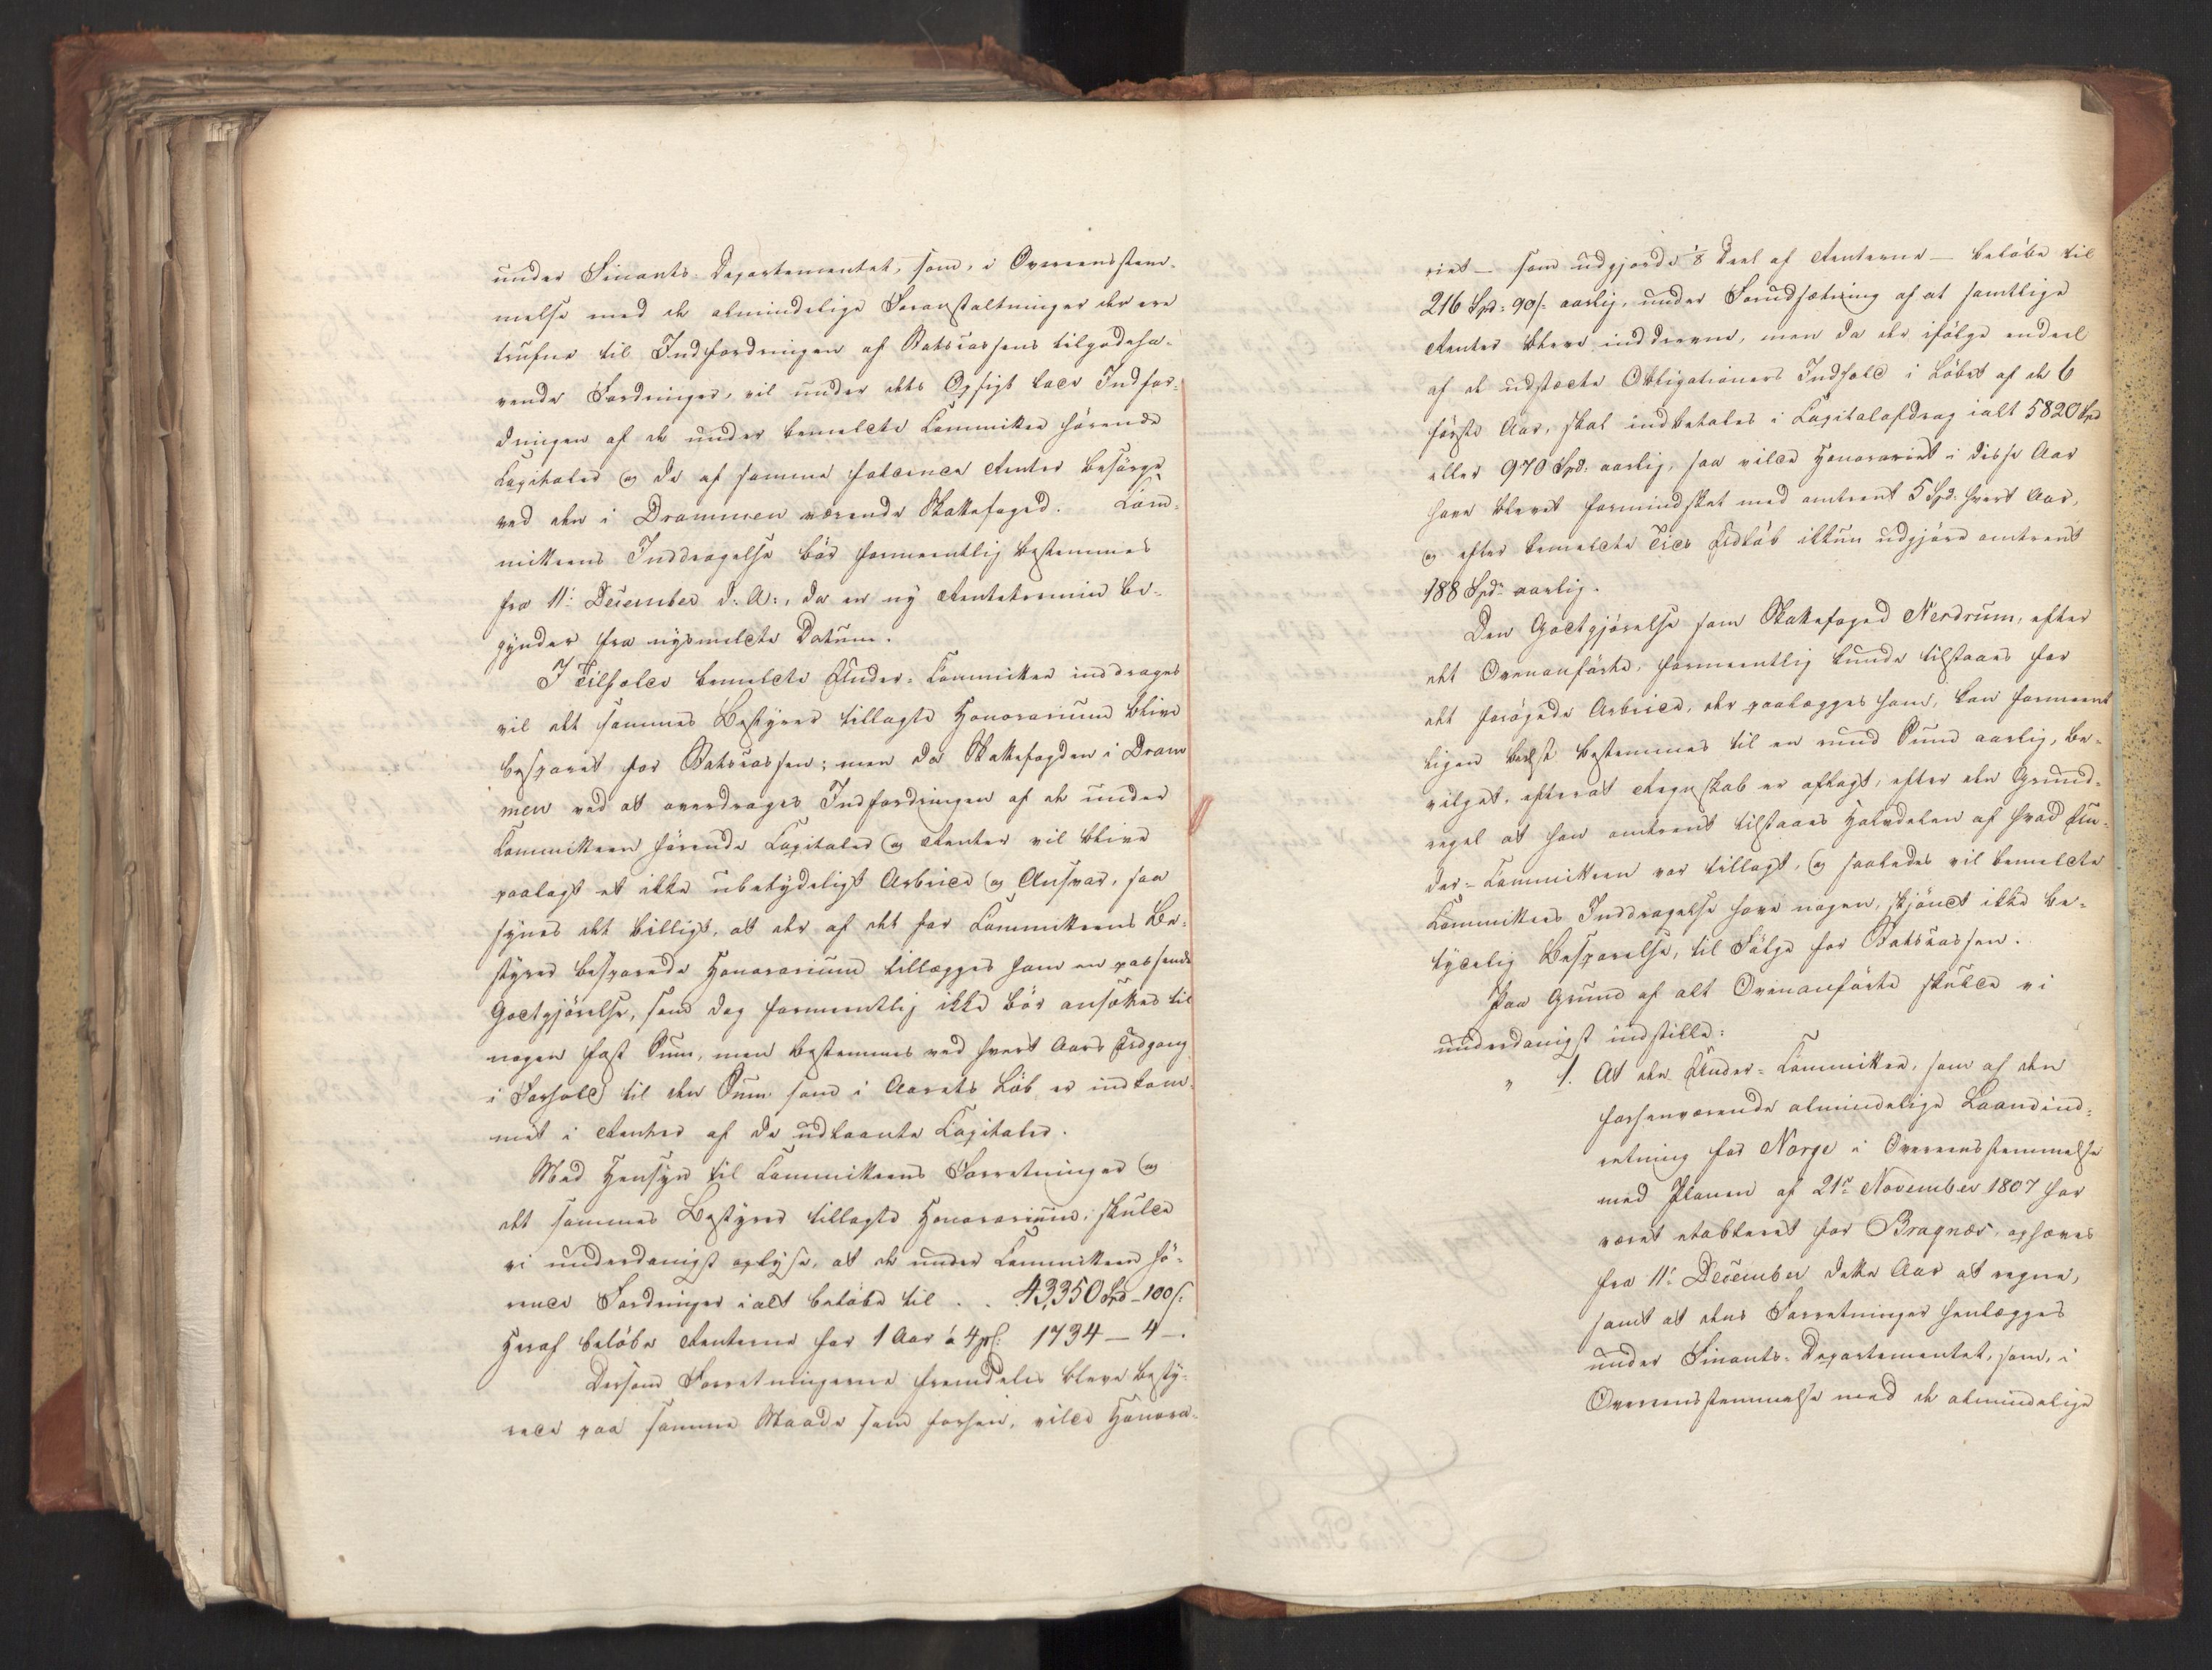 under Finants-Departementet, som, i Overeensstem-
melse med de almindelige Foranstaltninger der ere
trufne til Inddrivningen af Statscassens tilgodeha-
vende Fordringer, vil under dets Opsigt lade Indfor-
dringen af de under bemeldte Committee hørende
Capitaler og de af samme faldende Renter besørge
ved den i Drammen værende Skattefoged. Com-
mitteens Inddragelse bør formeentlig bestemmes
fra 11te December d: A:, da en ny Rentetermin be-
gynder fra nysmeldte Datum.
I Tilfælde bemeldte Under-Committee inddrages
vil det sammes Bestyrer tillagte Honorarium blive
besparet for Statscassen; men da Skattefogden i Dram
men ved at overdrages Indfordringen af de under
Committeen hørende Capitaler og Renter vil blive
paalagt et ikke ubetydeligt Arbeide og Ansvar, saa
synes det billigt, at der af det for Committeens Be-
styrer besparede Honorarium tillægges ham en passende
Godtgjørelse, som dog formeentlig ikke bør ansættes til
nogen fast Sum, men bestemmes ved hvert Aars Udgang
i Forhold til den Sum som i Aarets Løb er indkom-
met i Renter af de udlaante Capitaler.
Med Hensyn til Committeens Forretninger og
det sammes Bestyrer tillagte Honorarium, skulde
vi underdanigst oplyse, at de under Committeen hø-
rende Fordringer i alt beløbe til . . 43,350 Spd - 100 s:
Heraf beløbe Renterne for 1 Aar à 4 pC: 1734 — 4 —.
Dersom Forretningerne fremdeles bleve besty-
rede paa samme Maade som forhen, vilde Honora-
riet — som udgjorde 1/8 Deel af Renterne — beløbe til
216 Spd: 90 s: aarlig, under Forudsætning af at samtlige
Renter bleve inddrevne, men da der ifølge endeel
af de udstædte Obligationers Indhold i Løbet af de 6
første Aar, skal indbetales i Capitalafdrag ialt 5820 Spd
eller 970 Spd: aarlig, saa vilde Honorariet i disse Aar
have blevet formindsket med omtrent 5 Spd: hvert Aar,
og efter bemeldte Tids Udløb ikkun udgjøre omtrent
188 Spd: aarlig.
Den Godtgjørelse som Skattefoged Nerdrum, efter
det Ovenanførte, formeentlig kunde tilstaaes for
det forøgede Arbeide, der paalægges ham, kan formeent
ligen bedst bestemmes til en rund Sum aarlig, be-
vilget, efterat Regnskab er aflagt, efter den Grund-
regel at han omtrent tilstaaes Halvdelen af hvad Un-
der-Committeen var tillagt, og saaledes vil bemeldte
Committees Inddragelse have nogen, skjøndt ikke be-
tydelig Besparelse, til Følge for Statscassen.
Paa Grund af alt Ovenanførte skulde vi
underdanigst indstille:
" 1. At den Under-Committee, som af den
forhenværende almindelige Laaneind-
retning for Norge i Overeensstemmelse
med Planen af 21de November 1807 har
været etableret for Bragnæs, ophæves
fra 11te December dette Aar at regne,
samt at dens Forretninger henlægges
under Finants-Departementet, som, i
Overeensstemmelse med de almindelige